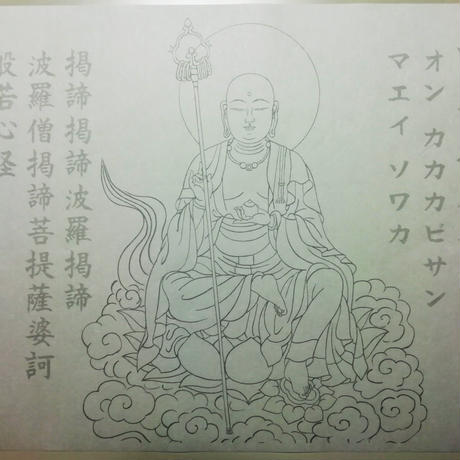 オン カカカビサン
マエイ ソワカ
掲諦掲諦波羅掲諦
波羅僧掲諦菩提薩婆訶
般若心経